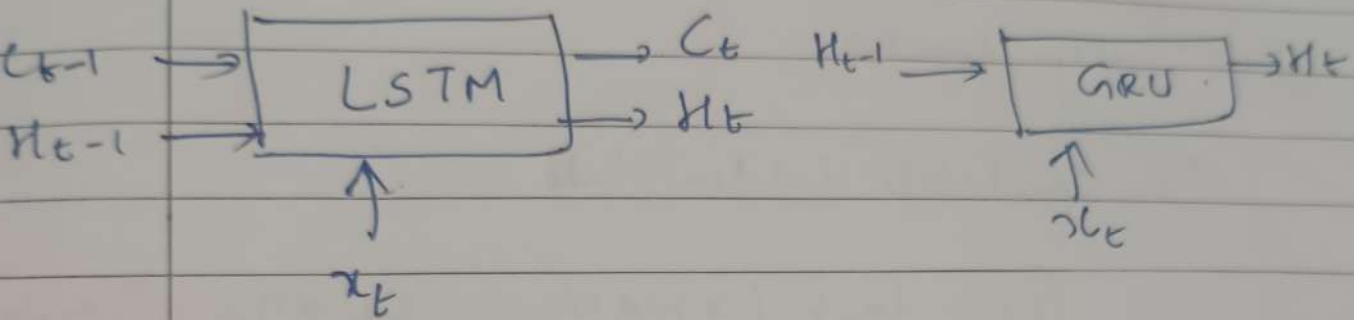 C_{t-1} → LSTM → C_t
H_{t-1} → → H_t
x_t
H_{t-1} → GRU → H_t
x_t